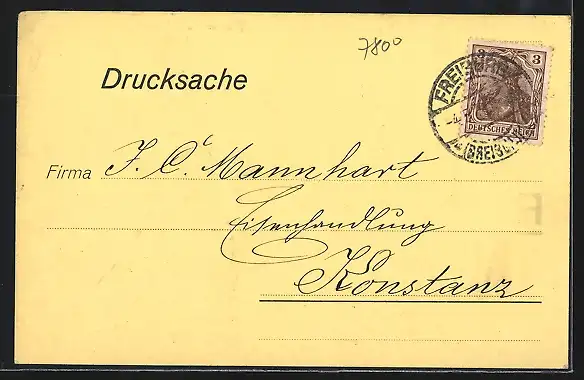 7800
Drucksache
3
DEUTSCHES REICH
FREIBURG
(BREISGAU)
Firma J. C. Mannhart
Eisenhandlung
Konstanz